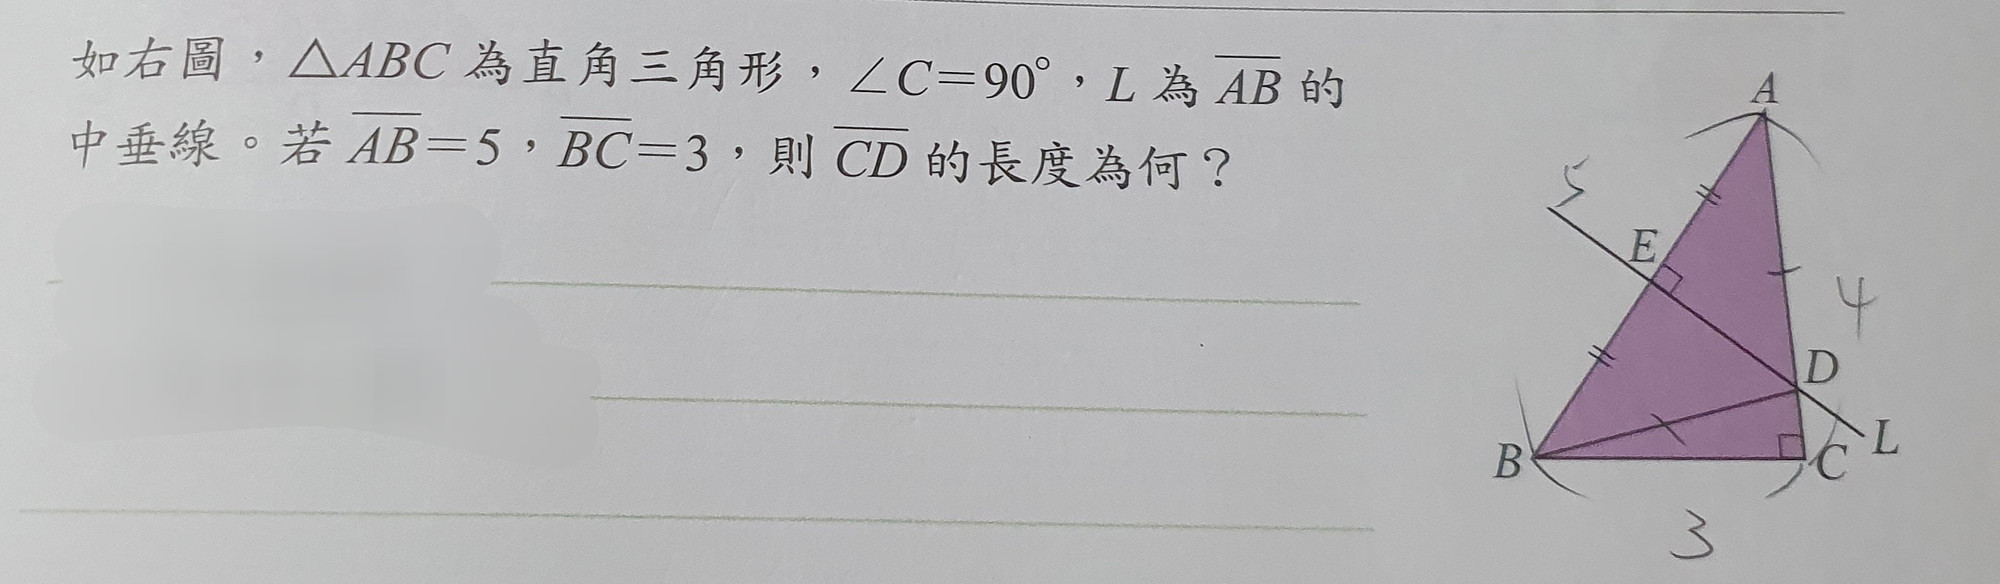 如右圖，△ABC 為直角三角形，∠C＝90°，L 為 AB 的
中垂線。若 AB＝5，BC＝3，則 CD 的長度為何？
A
5
E
4
D
L
B
C
3